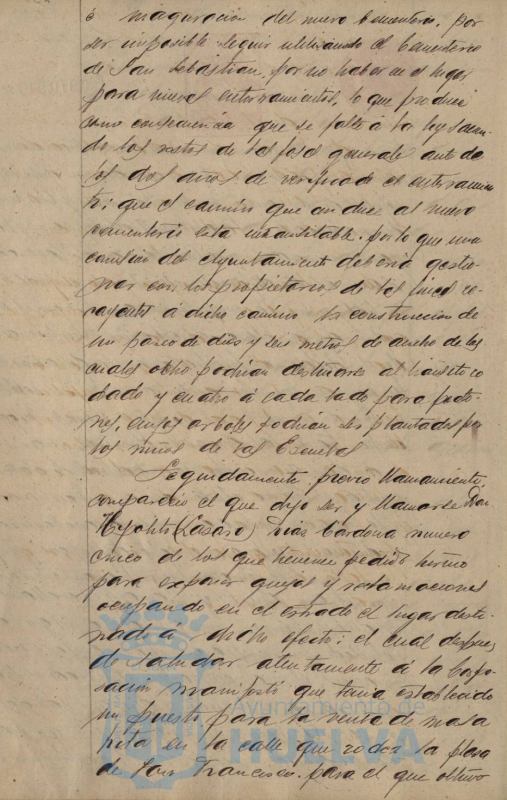 é inauguracion del nuevo Cementerio, por
ser imposible seguir utilizando el Cementerio
de San Sebastian, por no haber en el lugar
para nuevos enterramientos, lo que produce
como consecuencia que se falte á la ley sacan-
do los restos de las fosas generales antes de
los dos años de verificado el enterramien
to; que el camino que conduce al nuevo
cementerio está intransitable, por lo que una
comision del Ayuntamiento deberia gestio-
nar con los propietarios de las fincas co-
rayentes á dicho camino la construccion de
un paseo de diez y seis metros de ancho de los
cuales ocho podrian destinarse al transito ro
dado y cuatro á cada lado para peato-
nes, cuyos arboles podrian ser plantados por
los niños de las Escuelas
Seguidamente, previo llamamiento,
compareció el que dijo ser y llamarse Don
Hypolito (Lázaro) Dias Cardona numero
cinco de los que tienen pedido turno
para exponer quejas y reclamaciones
ocupando en el estrado el lugar desti-
nado á dicho efecto; el cual despues
de saludar atentamente á la Corpo-
racion manifestó que tenia establecido
un puesto para la venta de
en la calle que rodea la plaza
de San Francisco, para el que obtuvo
Ayuntamiento de
HUELVA